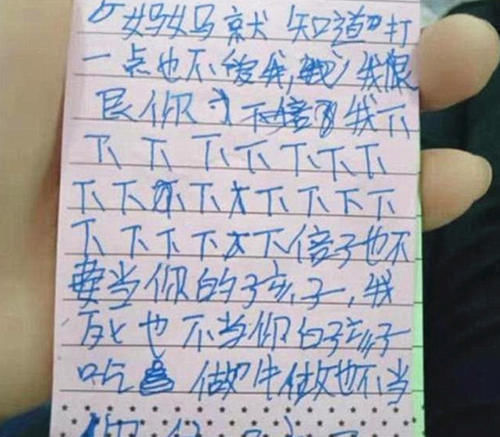 妈妈就“知道”打
一点也不爱我,我恨
你我下
下下下下下下下
下下下下下下下下
下下下下下下倍子也不
要当你的孩子,我
死也不当你的孩子
吃 做牛做也不当